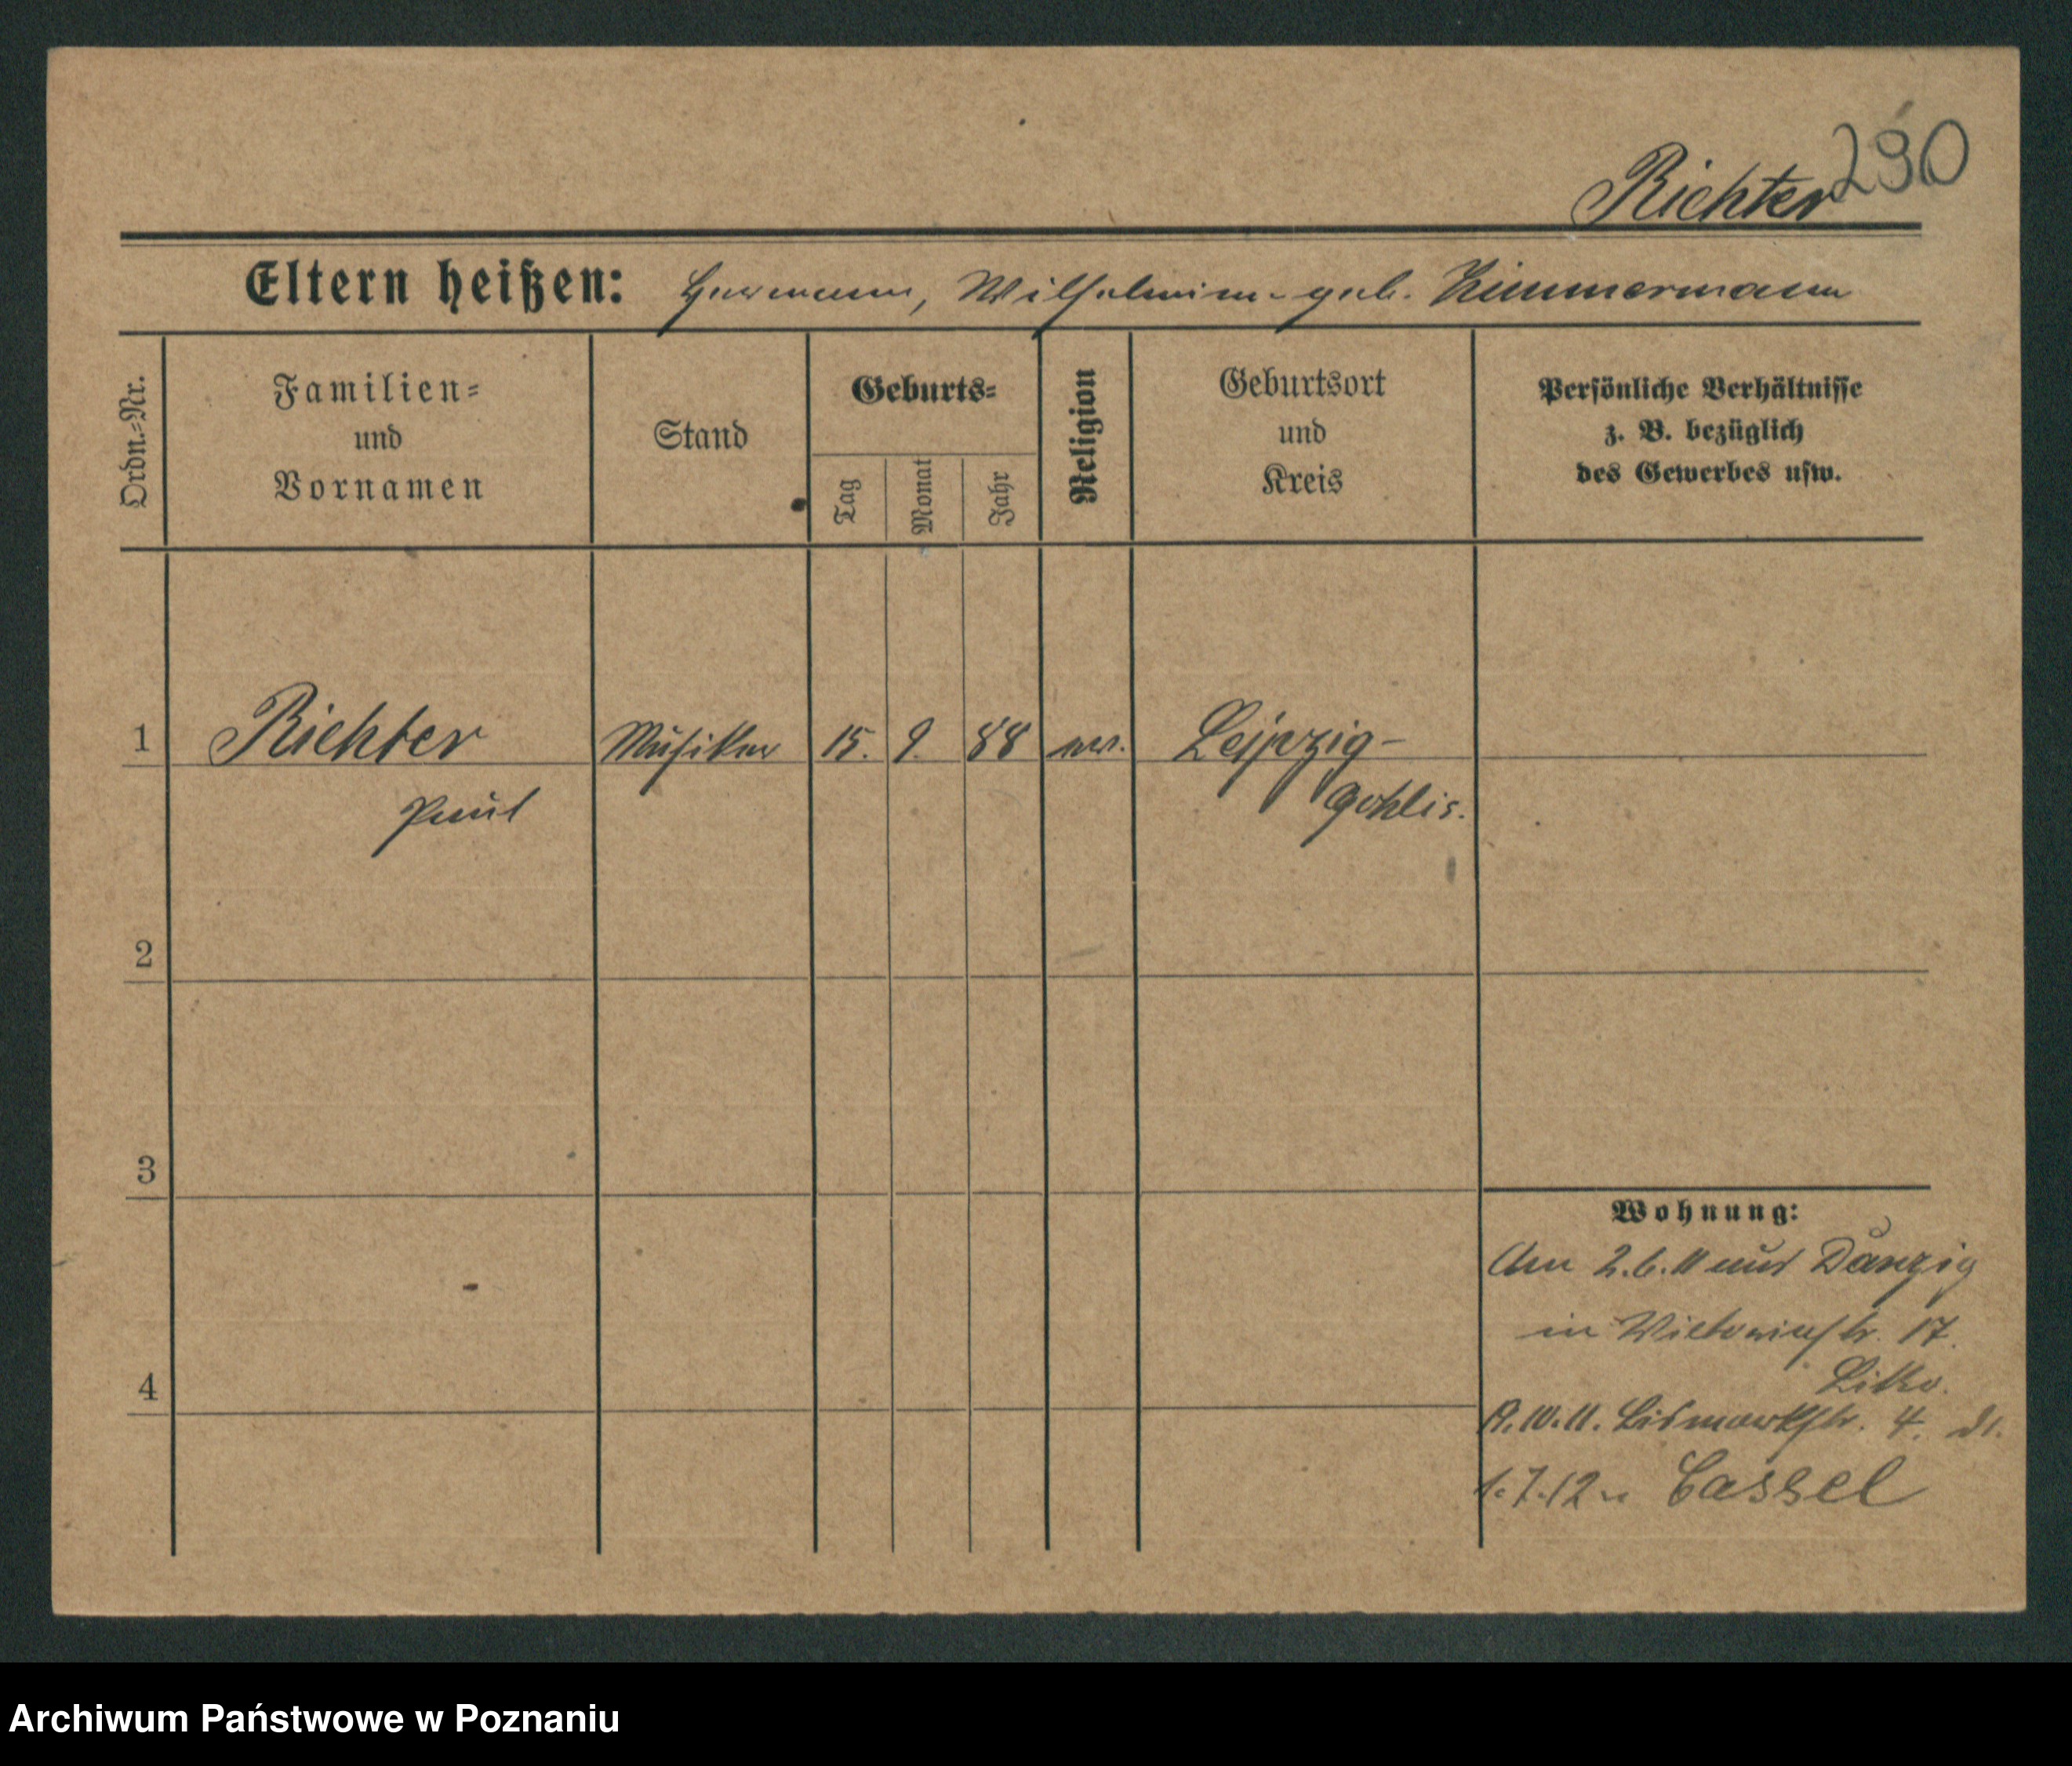 290
Richter
Eltern heißen: Hermann, Wilhelmine geb. Zimmermann
Ordn.-Nr.
Familien-
und
Vornamen
Stand
Geburts-
Tag
Monat
Jahr
Religion
Geburtsort
und
Kreis
Persönliche Verhältnisse
z. B. bezüglich
des Gewerbes usw.
1 Richter Musiker 15. 9. 88 ev. Leipzig-
Paul Gohlis.
2
3
4
Wohnung:
Am 2.6.11 aus Danzig
in Victoriastr. 17.
10.11. Bismarkstr. 4.
1.7.12 n. Cassel
Archiwum Państwowe w Poznaniu